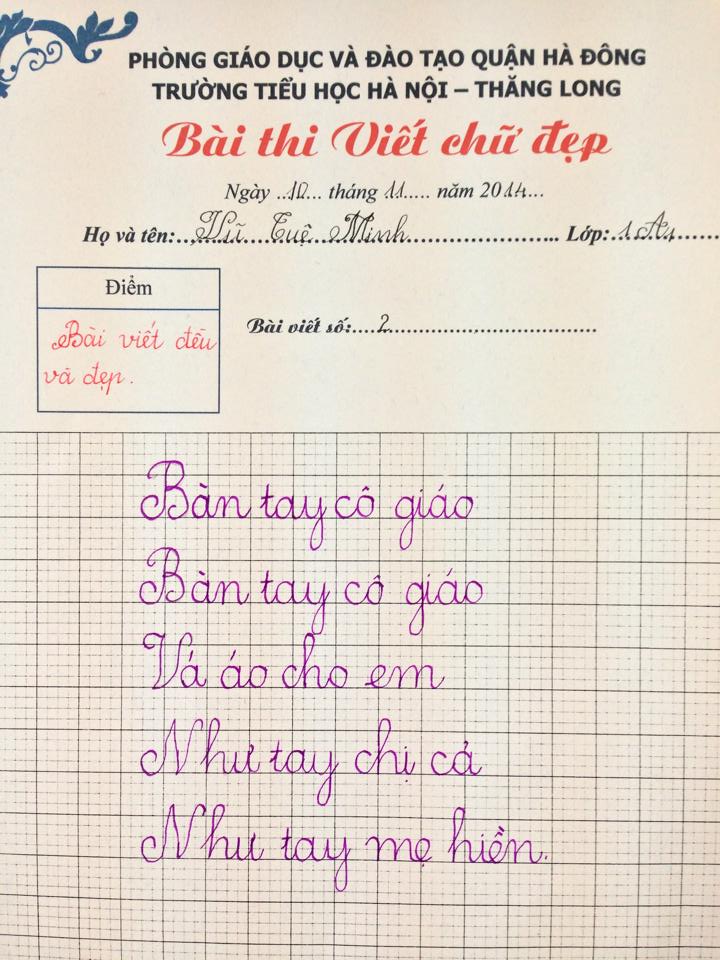 PHÒNG GIÁO DỤC VÀ ĐÀO TẠO QUẬN HÀ ĐÔNG
TRƯỜNG TIỂU HỌC HÀ NỘI – THĂNG LONG
Bài thi Viết chữ đẹp
Ngày ...10... tháng .11..... năm 2014...
Họ và tên: Vũ Tuệ Minh Lớp: 1A4
Điểm
Bài viết đều
và đẹp.
Bài viết số: 2
Bàn tay cô giáo
Bàn tay cô giáo
Vá áo cho em
Như tay chị cả
Như tay mẹ hiền.